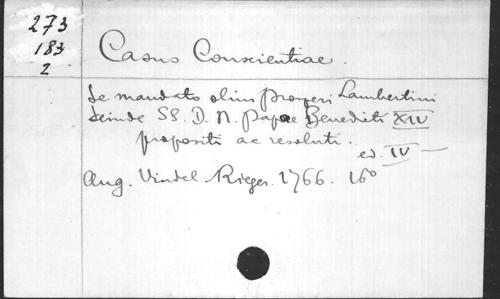 273
183
2
Casus Conscientiae.
de mandato olim Prosperi Lambertini
deinde SS. D. N. Papae Benedicti XIV
propositi ac resoluti.
ed. IV
Aug. Vindel. Rieger. 1766. 16°